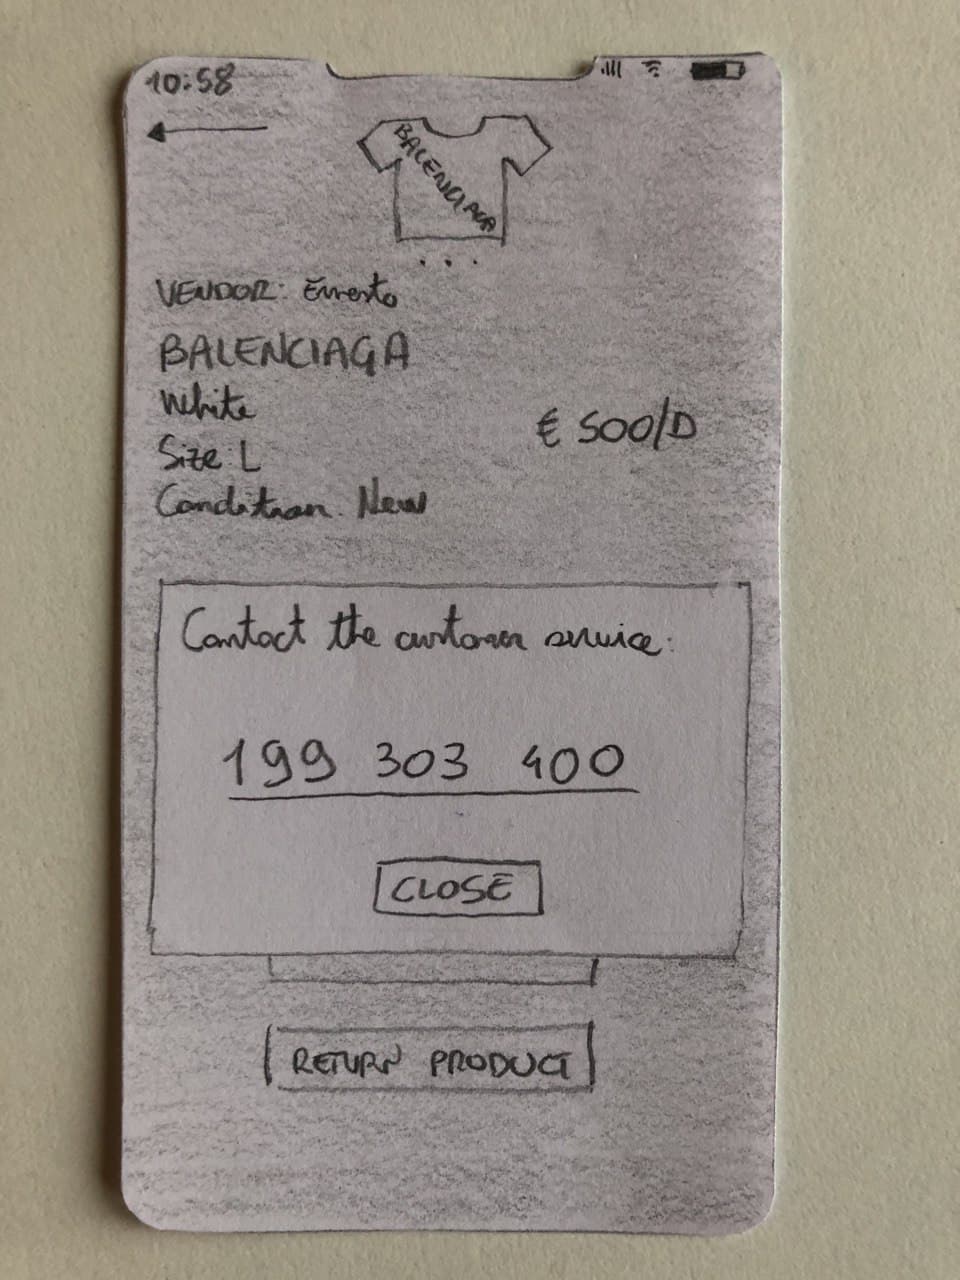 10:58
BALENCIAGA
VENDOR: Ernesto
BALENCIAGA
White
€ 500/D
Size: L
Condition: New
Contact the customer service:
199 303 400
CLOSE
RETURN PRODUCT